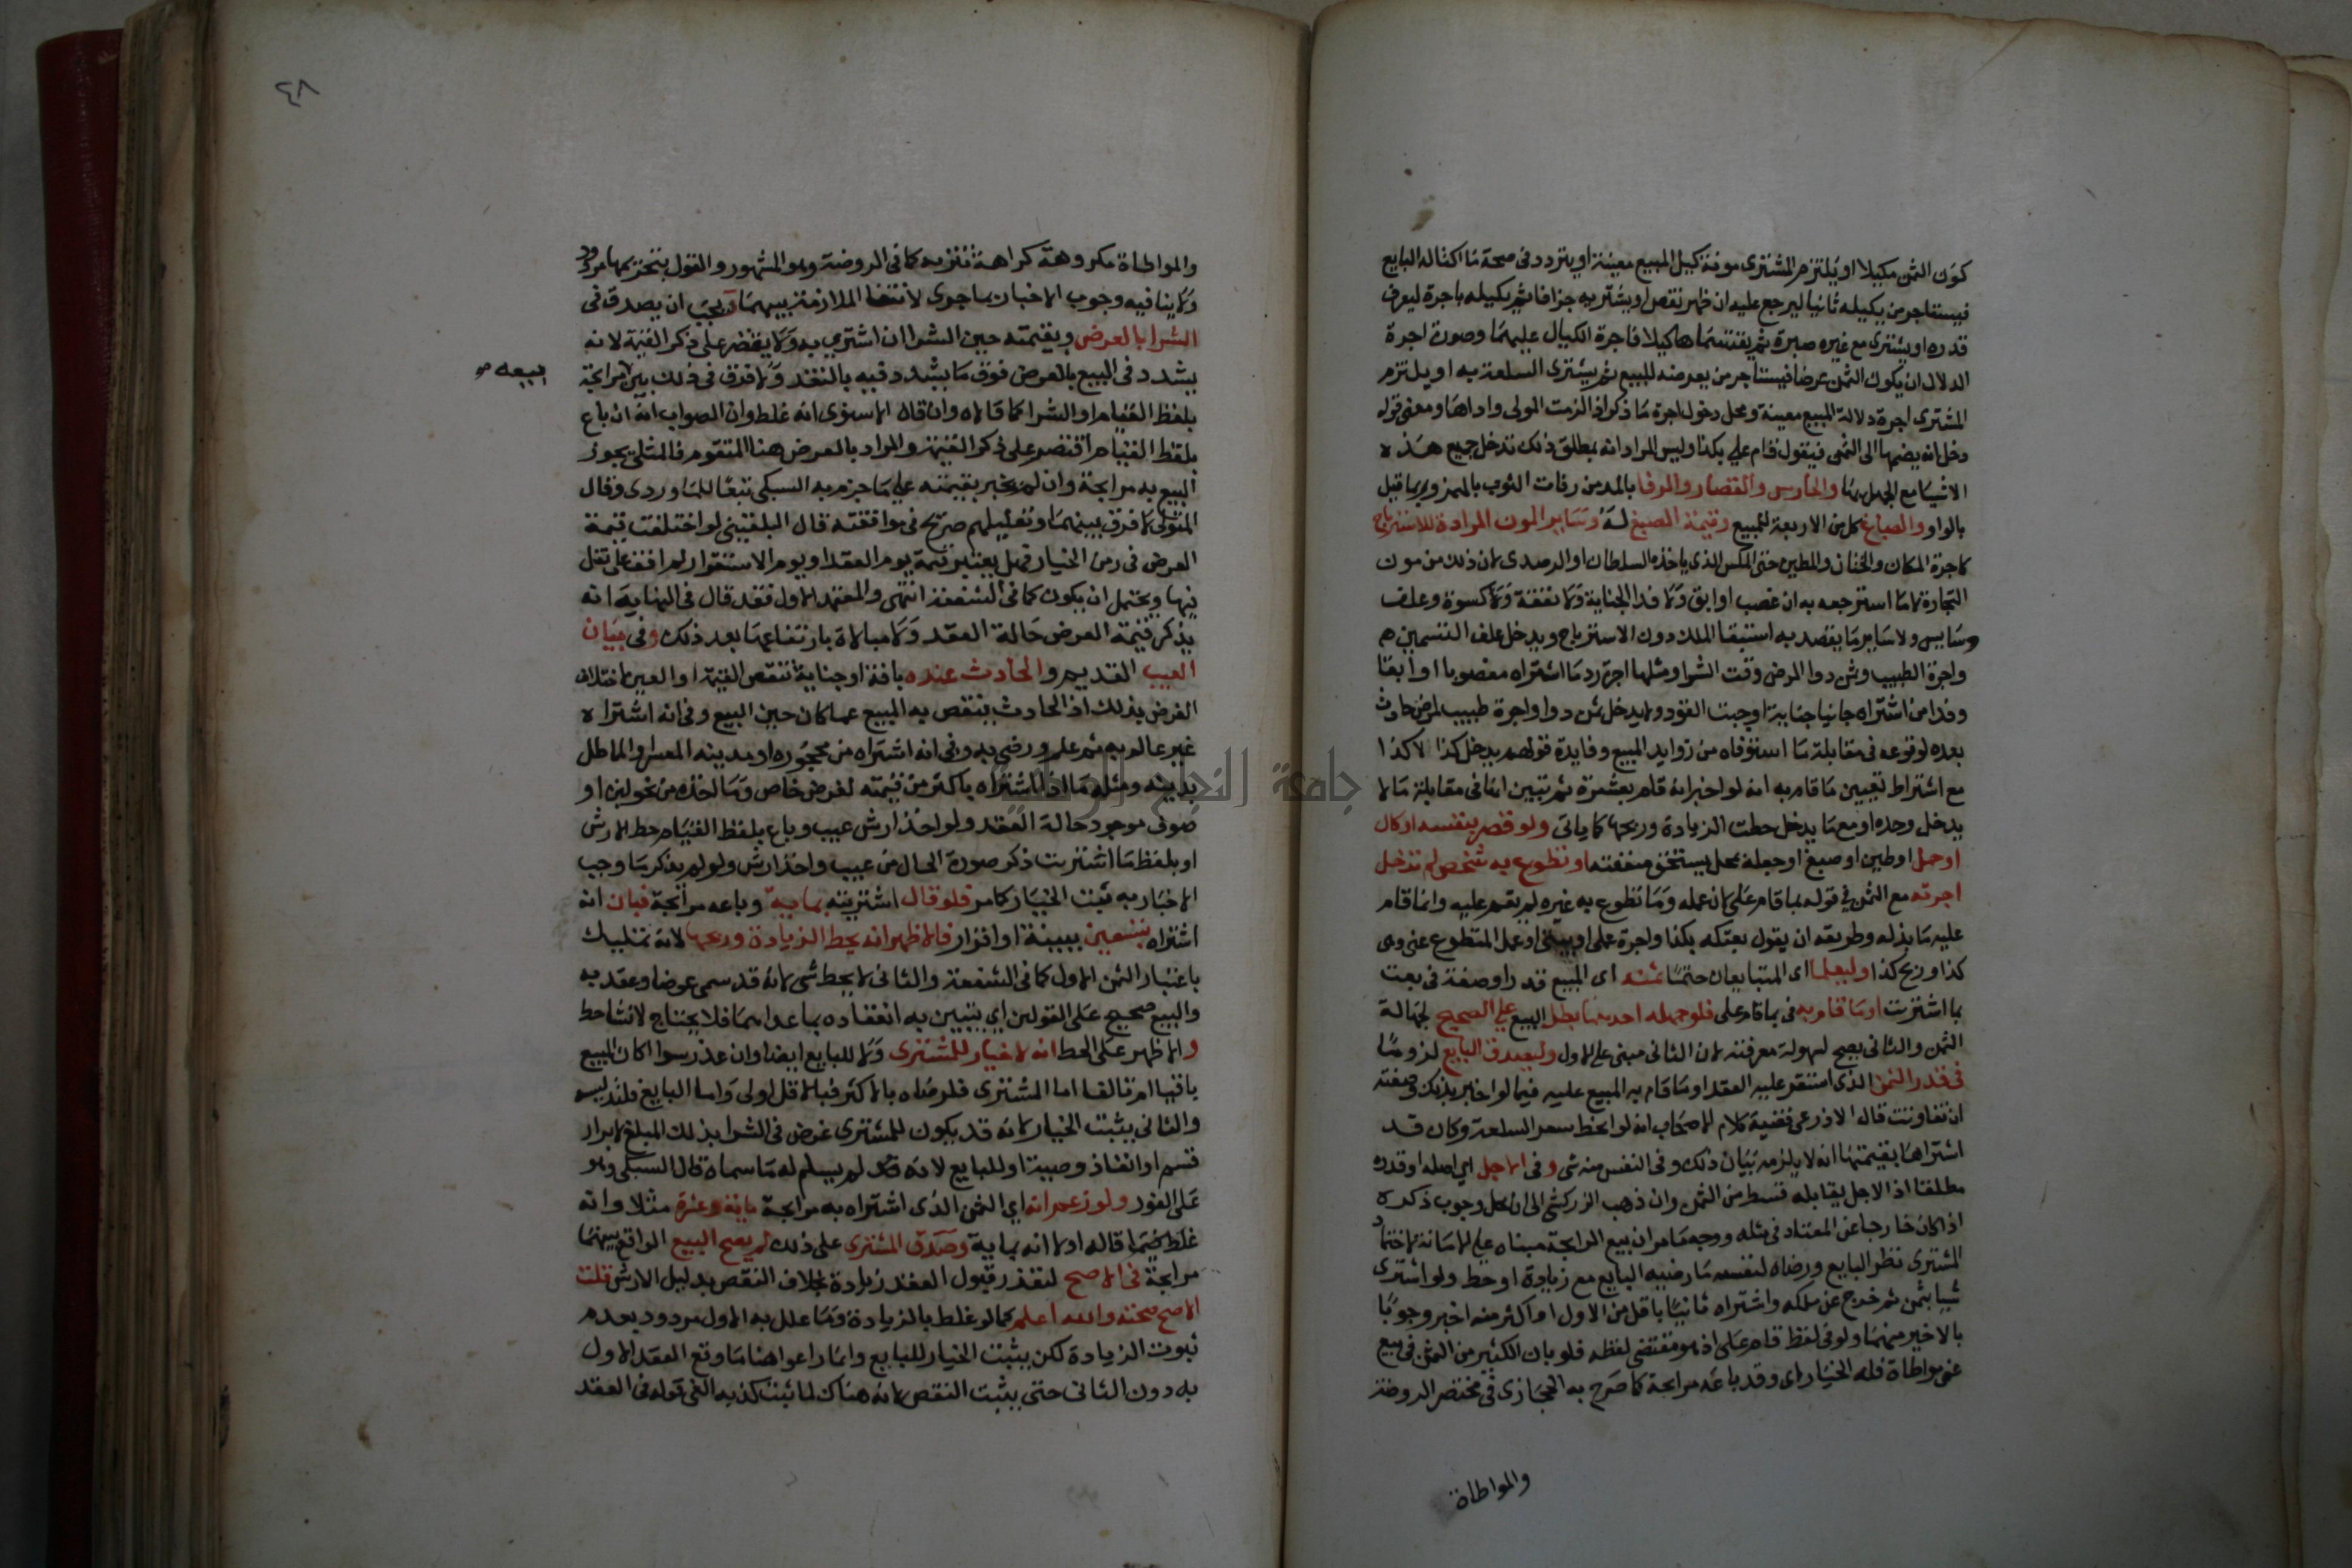 كون الثمن مكيلا او يلتزم المشترى مونة كيل المبيع معينة او يتردد فى صحة ما اكتاله البايع
فيستاجر من يكيله ثانيا ليرجع عليه ان ظهر نقص او يشتريه جزافا ثم يكيله باجرة ليعرف
قدره او يشترى مع غيره صبرة ثم يقتسماها كيلا فاجرة الكيال عليهما وصورة اجرة
الدلال ان يكون الثمن عرضا فيستاجر من يعرضه للبيع ثم يشترى السلعة به او يلتزم
المشترى اجرة دلالة المبيع معينة ومحل دخول اجرة ما ذكر اذا لزمت المولى واداها ومعنى قوله
دخل انه يضمها الى الثمن فيقول قام علي بكذا وليس المراد انه بمطلق ذلك تدخل جميع هذه
الاشيا مع الجهل بها والحارس والقصار والرفا بالمد من رفات الثوب بالهمز وربما قيل
بالواو والصباغ كل من الاربعة للمبيع وقيمة الصبغ له وساير المون المرادة للاسترباح
كاجرة المكان والختان والمطين حتى المكس الذى ياخذه السلطان او الرصدى لان ذلك من مون
التجارة لا ما استرجعه به ان غصب او ابق ولا فدا الجناية ولا نفقة ولا كسوة وعلف
وسايس ولا ساير ما يقصد به استبقا الملك دون الاسترباح ويدخل علف التسمين م
واجرة الطبيب وثمن دوا المرض وقت الشرا ومثلها اجرة رد ما اشتراه مغصوبا او ابقا
وفدا من اشتراه جانيا جناية اوجبت القود ولا يدخل ثمن دوا واجرة طبيب لمرض حادث
بعده لوقوعه فى مقابلة ما استوفاه من زوايد المبيع وفايدة قولهم يدخل كذا لا كذا
مع اشتراط تعيين ما قام به انه لو اخبر انه قام بعشرة ثم تبين انها فى مقابلة ما لا
يدخل وحده او مع ما يدخل حطت الزيادة وربحها كما ياتى ولو قصر بنفسه او كال
او حمل او طين او صبغ او جعله بمحل يستحق منفعته او تطوع به شخص لم تدخل
اجرته مع الثمن فى قوله بما قام على لان عمله وما تطوع به غيره لم يقم عليه وانما قام
عليه ما بذله وطريقه ان يقول بعتكه بكذا واجرة عملى او بيتى او عمل المتطوع عنى وهى
كذا وربح كذا وليعلما اى المتبايعان حتما ثمنه اى المبيع قدرا وصفة فى بعت
بما اشتريت او ما قام به فى بما قام على فلو جهله احدهما بطل البيع علي الصحيح لجهالة
الثمن والثانى يصح لسهولة معرفته لان الثانى مبنى على الاول وليصدق البايع لزوما
فى قدر الثمن الذى استقر عليه العقد او ما قام به المبيع عليه فيما لو اخبر بذلك وصفته
ان تفاوتت قال الاذرعى قضية كلام الاصحاب انه لو انحط سعر السلعة وكان قد
اشتراها بقيمتها انه لا يلزمه بيان ذلك وفى النفس منه شى وفى الاجل اي اصله او قدره
مطلقا اذ الاجل يقابله قسط من الثمن وان ذهب الزركشى الى ان محل وجوب ذكره
اذا كان خارجا عن المعتاد فى مثله ووجه ما مر ان بيع المرابحة مبناه علي الامانة لاعتماد
المشترى نظر البايع ورضاه لنفسه ما رضيه البايع مع زيادة او حط ولو اشترى
شيا بثمن ثم خرج عن ملكه واشتراه ثانيا باقل من الاول او اكثر منه اخبر وجوبا
بالاخير منهما ولو فى لفظ قام على اذ هو مقتضى لفظه فلو بان الكثير من الثمن فى بيع
عن مواطاة فله الخيار اى وقد باعه مرابحة كما صرح به الحجازى فى مختصر الروضة
والمواطاة
٤٨
والمواطاة مكروهة كراهة تنزيه كما فى الروضة وهو المشهور والقول بتحريمها مردود
ولا ينافيه وجوب الاخبار بما جرى لانتفا الملازمة بينهما ويجب ان يصدق فى
الشرا بالعرض وبقيمته حين الشرا ان اشترى به ولا يقتصر على ذكر القيمة لانه
يشدد فى البيع بالعرض فوق ما يشدد فيه بالنقد ولا فرق فى ذلك بين مرابحة
بيعه صح
بلفظ القيام او الشرا كما قالاه وان قال الاسنوى انه غلط وان الصواب انه ان باع
بلفظ القيام اقتصر على ذكر القيمة والمراد بالعرض هنا المتقوم فالمثلى يجوز
البيع به مرابحة وان لم يخبر بقيمته على ما جزم به السبكى تبعا للماوردى وقال
المتولى لا فرق بينهما وتعليلهم صريح فى موافقته قال البلقينى لو اختلفت قيمة
العرض فى زمن الخيار فهل يعتبر قيمة يوم العقد او يوم الاستقرار لم اقف على نقل
فيها ويحتمل ان يكون كما فى الشفعة انتهى والمعتمد الاول فقد قال فى النهاية انه
يذكر قيمة العرض حالة العقد ولا مبالاة بارتفاعها بعد ذلك وفى بيان
العيب القديم والحادث عنده بافة او جناية تنقص القيمة او العين لاختلاف
الغرض بذلك اذ الحادث ينقص به المبيع عما كان حين البيع وفى انه اشتراه
غير عالم به ثم علم ورضى به وفى انه اشتراه من محجوره او مدينه المعسر او المماطل
بدينه ومثله ما اذا اشتراه باكثر من قيمته لغرض خاص وما اخذه من نحو لبن او
صوف موجود حالة العقد ولو اخذ ارش عيب وباع بلفظ القيام حط الارش
او بلفظ ما اشتريت ذكر صورة الحال من عيب واخذ ارش ولو لم يذكر ما وجب
الاخبار به ثبت الخيار كما مر فلو قال اشتريته بماية وباعه مرابحة فبان انه
اشتراه بتسعين ببينة او اقرار فالاظهر انه يحط الزيادة وربحها لانه تمليك
باعتبار الثمن الاول كما فى الشفعة والثانى لا يحط شى لانه قد سمى عوضا وعقد به
والبيع صحيح على القولين اي يتبين به انعقاده بما عداهما فلا يحتاج لانشا حط
و الاظهر على الحط انه لا خيار للمشترى ولا للبايع ايضا وان عذر سوا اكان المبيع
باقيا ام تالفا اما المشترى فلرضاه بالاكثر فبالاقل اولى واما البايع فلتدليسه
والثانى يثبت الخيار لانه قد يكون للمشترى غرض فى الشرا بذلك المبلغ لابرار
قسم او انفاذ وصية او للبايع لانه قد لم يسلم له ما سماه قال السبكى وهو
على الفور ولو زعم انه اي الثمن الذى اشتراه به مرابحة ماية وعشرة مثلا وانه
غلط فيما قاله اولا انه بماية وصدقه المشترى على ذلك لم يصح البيع الواقع بينهما
مرابحة فى الاصح لتعذر قبول العقد زيادة بخلاف النقص بدليل الارش قلت
الاصح صحته والله اعلم كما لو غلط بالزيادة وما علل به الاول مردود بعدم
ثبوت الزيادة لكن يثبت الخيار للبايع وانما راعوا هنا ما وقع العقد الاول
به دون الثانى حتى يثبت النقص لانه هناك لما ثبت كذبه الغى قوله فى العقد
جامعة النجاح الوطنية